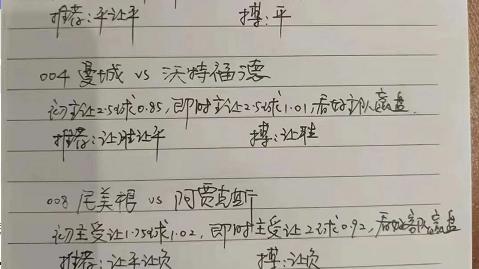 推荐:平让平 搏:平
004 曼城 vs 沃特福德
初主让2.5球0.85,即时主让2.5球1.01,看好主队赢盘.
推荐:让胜让平 搏:让胜
008 尼美根 vs 阿贾克斯
初主受让1.75球1.02,即时主受让2球0.92,看好客队赢盘
推荐:让平让负 搏:让负